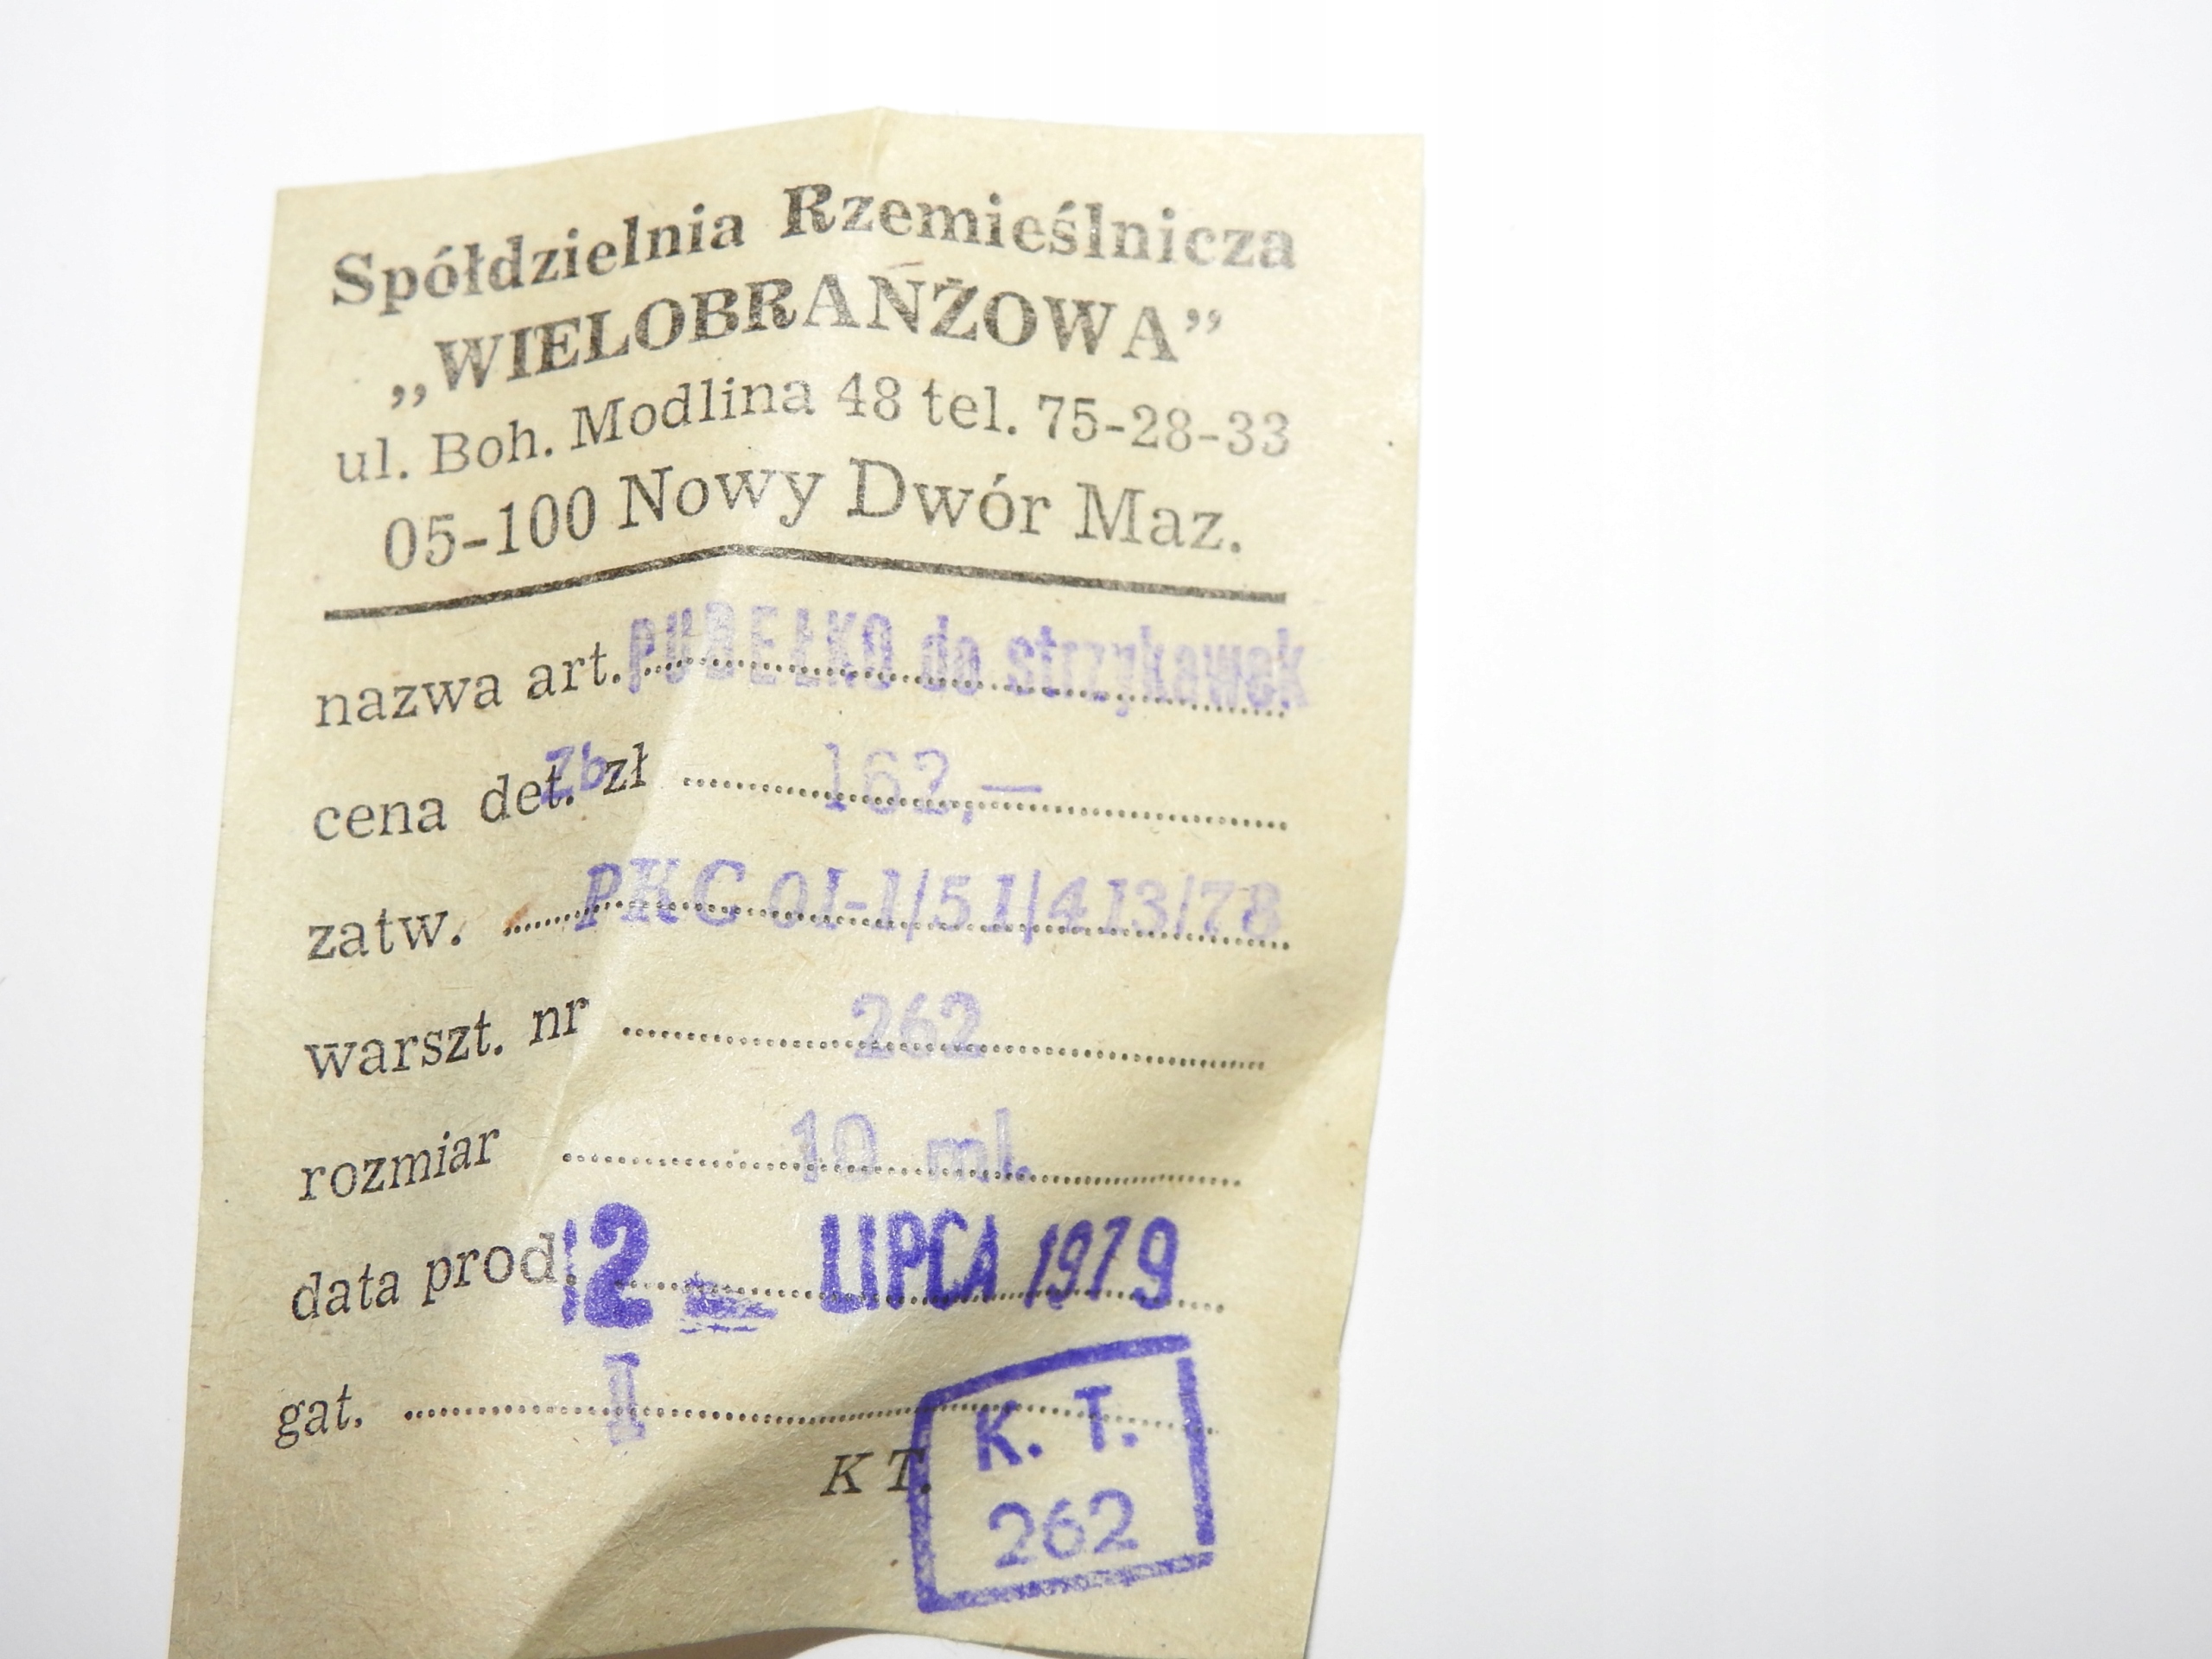 Spółdzielnia Rzemieślnicza
„WIELOBRANŻOWA”
ul. Boh. Modlina 48 tel. 75-28-33
05-100 Nowy Dwór Maz.
nazwa art. PUDEŁKO do strzykawek
cena det. zł Zb 162,—
zatw. PKC 01-1/51/413/78
warszt. nr 262
rozmiar 10 ml.
data prod. 12 LIPCA 1979
gat. I
K T.
K. T.
262